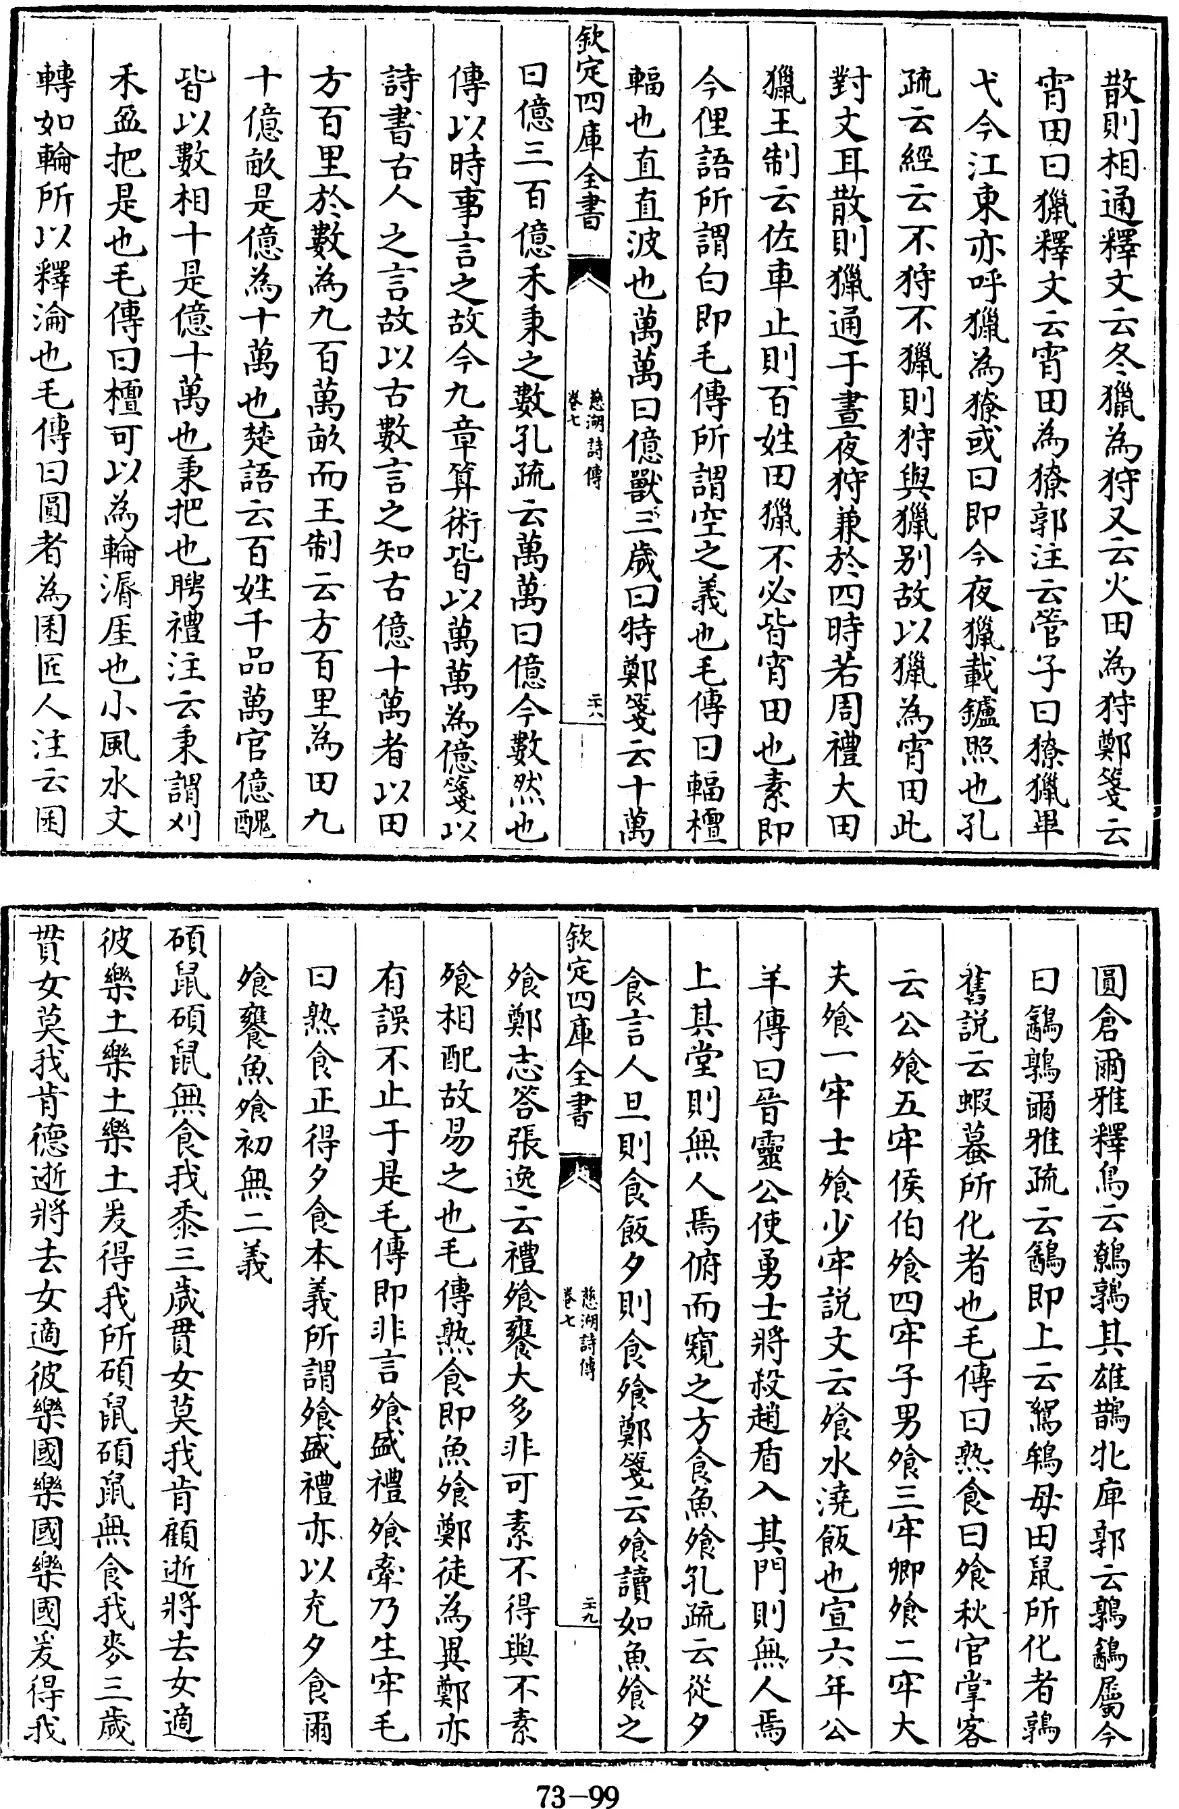 散則相通釋文云冬獵為狩又云火田為狩鄭箋云
宵田曰獵釋文云宵田為獠郭注云管子曰獠獵畢
弋今江東亦呼獵為獠或曰即今夜獵載鑪照也孔
疏云經云不狩不獵則狩與獵别故以獵為宵田此
對文耳散則獵通于晝夜狩兼於四時若周禮大田
獵王制云佐車止則百姓田獵不必皆宵田也素即
今俚語所謂白即毛傳所謂空之義也毛傳曰輻檀
輻也直直波也萬萬曰億獸三歲曰特鄭箋云十萬
欽定四庫全書
慈湖詩傳
卷七
二十八
曰億三百億禾秉之數孔疏云萬萬曰億今數然也
傳以時事言之故今九章算術皆以萬萬為億箋以
詩書古人之言故以古數言之知古億十萬者以田
方百里於數為九百萬畝而王制云方百里為田九
十億畝是億為十萬也楚語云百姓千品萬官億醜
皆以數相十是億十萬也秉把也聘禮注云秉謂刈
禾盈把是也毛傳曰檀可以為輪漘厓也小風水文
轉如輪所以釋淪也毛傳曰圓者為囷匠人注云囷
圓倉爾雅釋鳥云鷯鶉其雄鶛牝庳郭云鶉鷂屬今
曰鷂鶉爾雅疏云鷂即上云鴽鴾母田鼠所化者鶉
舊説云蝦蟇所化者也毛傳曰熟食曰飱秋官掌客
云公飱五牢侯伯飱四牢子男飱三牢卿飱二牢大
夫飱一牢士飱少牢説文云飱水澆飯也宣六年公
羊傳曰晉靈公使勇士將殺趙盾入其門則無人焉
上其堂則無人焉俯而窺之方食魚飱孔疏云從夕
食言人旦則食飯夕則食飱鄭箋云飱讀如魚飱之
欽定四庫全書
慈湖詩傳
卷七
二十九
飱鄭志答張逸云禮飱饔大多非可素不得與不素
飱相配故易之也毛傳熟食即魚飱鄭徒為異鄭亦
有誤不止于是毛傳即非言飱盛禮飱牽乃生牢毛
曰熟食正得夕食本義所謂飱盛禮亦以充夕食爾
飱饔魚飱初無二義
碩鼠碩鼠無食我黍三歲貫女莫我肯顧逝將去女適
彼樂土樂土樂土爰得我所碩鼠碩鼠無食我麥三歲
貫女莫我肯德逝將去女適彼樂國樂國樂國爰得我
73-99